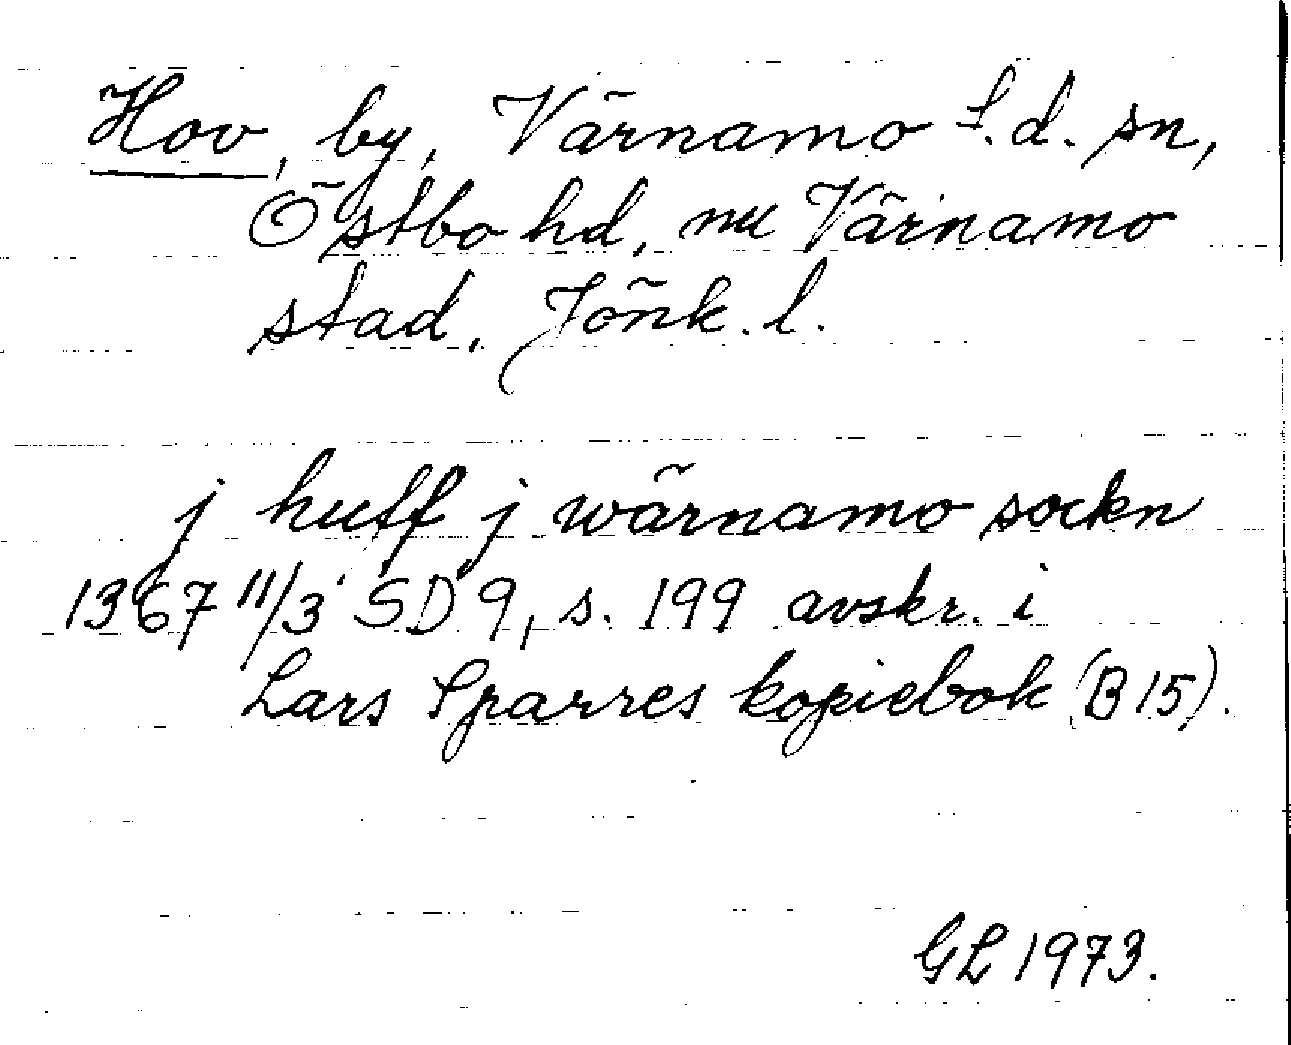 Hov, by, Värnamo f.d. sn,
Östbo hd, nu Värnamo
stad, Jönk. l.
j huff j wärnamo sockn
1367 11/3 SD 9, s. 199 avskr. i
Lars Sparres kopiebok (B 15).
GL 1973.